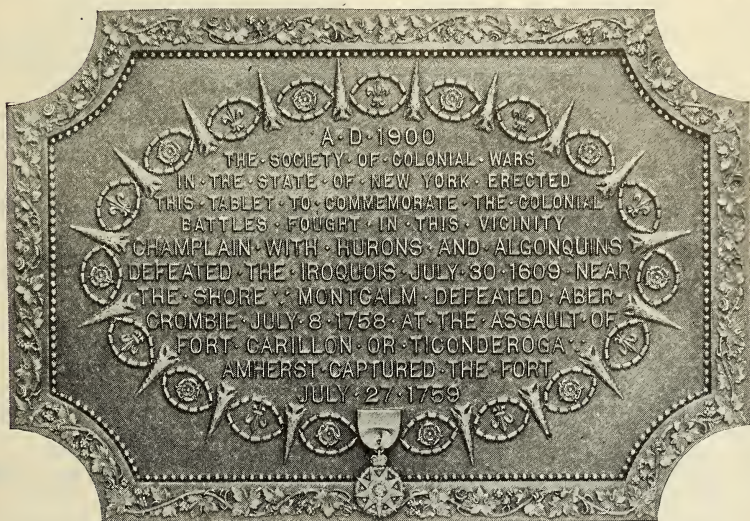 A·D·1900
THE·SOCIETY·OF·COLONIAL·WARS
IN·THE·STATE·OF·NEW·YORK·ERECTED
THIS·TABLET·TO·COMMEMORATE·THE·COLONIAL
BATTLES·FOUGHT·IN·THIS·VICINITY
CHAMPLAIN·WITH·HURONS·AND·ALGONQUINS
DEFEATED·THE·IROQUOIS·JULY·30·1609·NEAR
THE·SHORE∵MONTCALM·DEFEATED·ABER-
CROMBIE·JULY·8·1758·AT·THE·ASSAULT·OF
FORT·CARILLON·OR·TICONDEROGA∵
AMHERST·CAPTURED·THE·FORT
JULY·27·1759